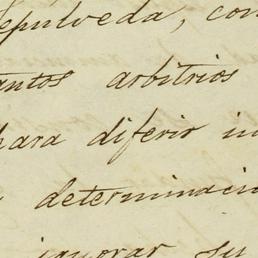 Sepulveda, con
antos arbitrios
para diferir in
determinacio
ignorar su